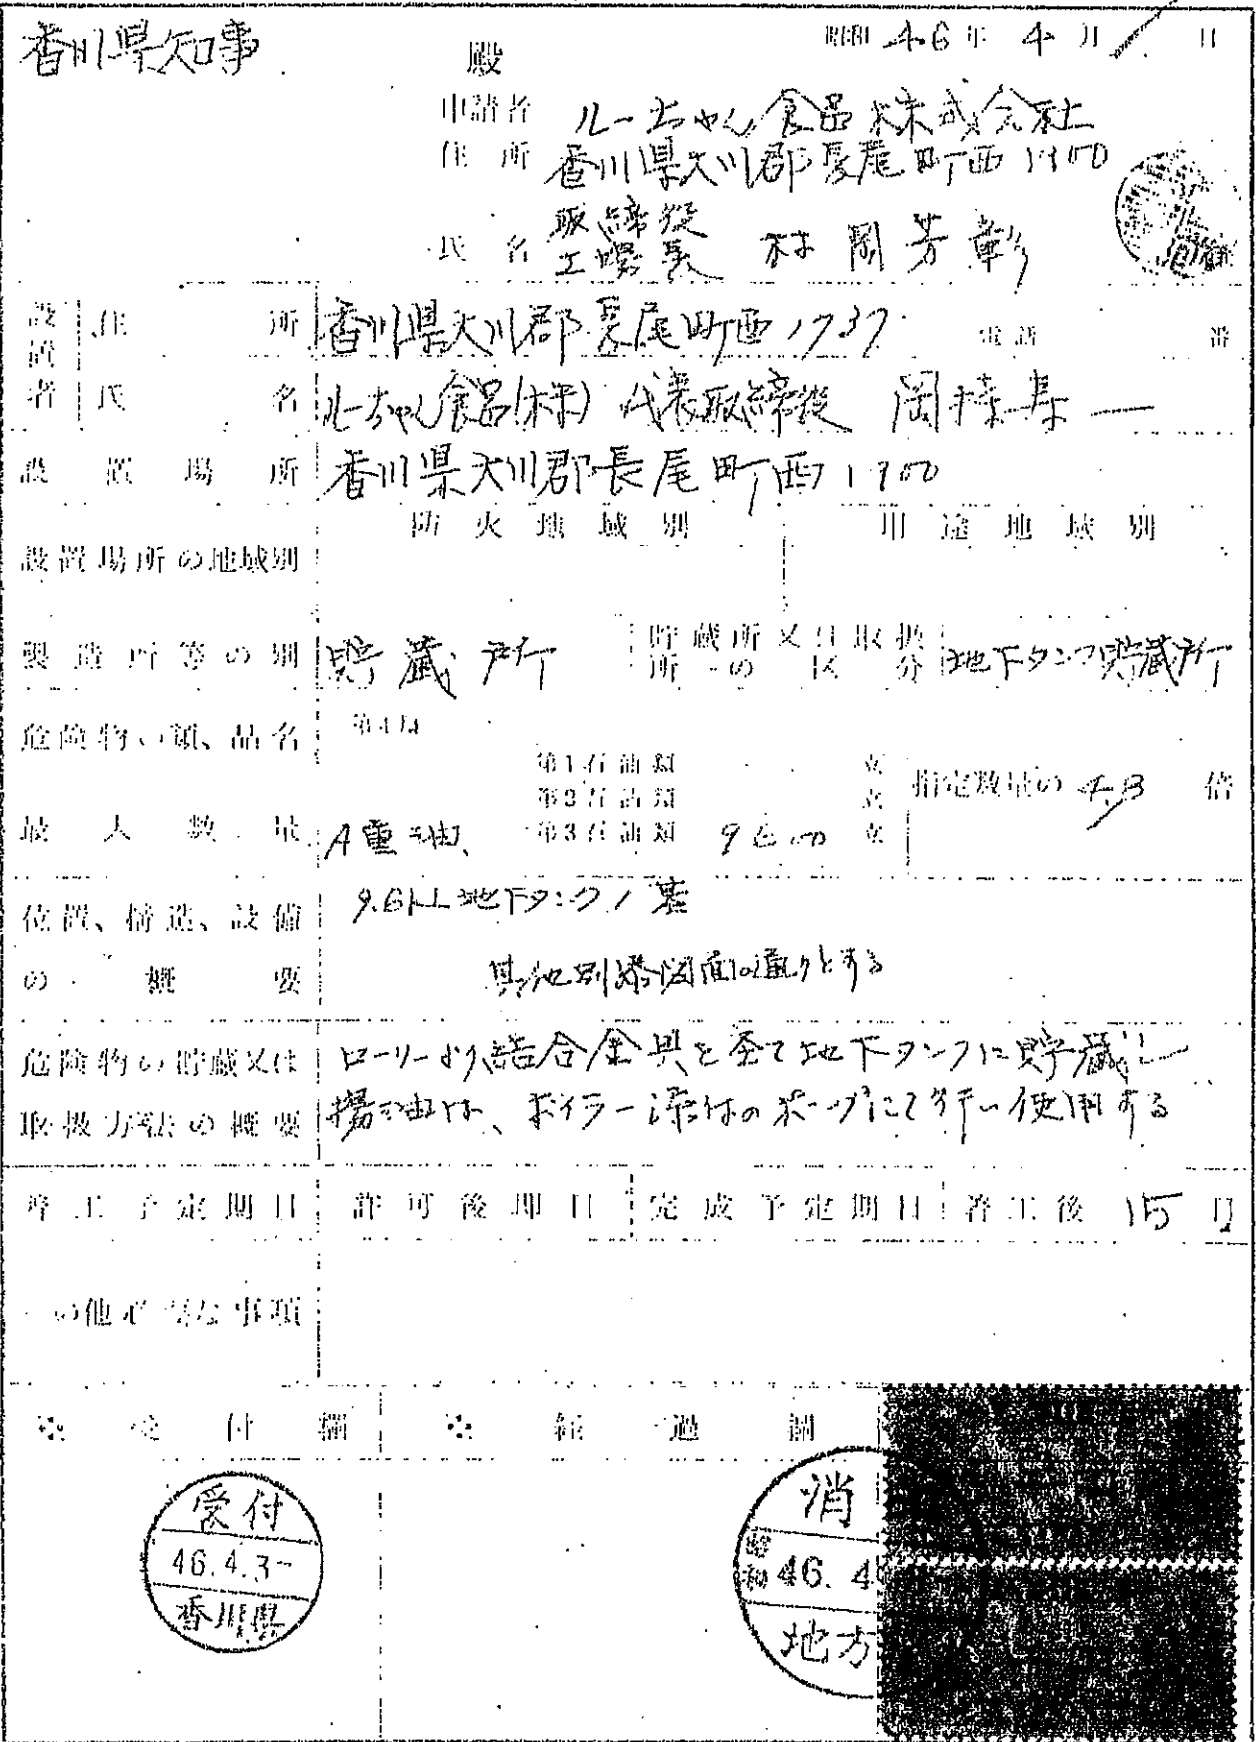 香川県知事 殿
昭和 46年 4月 1日
申請者 ルーちゃん食品株式会社
住所 香川県大川郡長尾町西1900
取締役
氏名 工場長 村岡芳彰
設置者 住所 香川県大川郡長尾町西1737 電話 番
氏名 ルーちゃん食品(株) 代表取締役 岡
設置場所 香川県大川郡長尾町西1900
設置場所の地域別 防火地域別 用途地域別
製造所等の別 貯蔵所 貯蔵所又は取扱所の区分 地下タンク貯蔵所
危険物の類、品名 第4類
第1石油類 立
第2石油類 立 指定数量の 4.8 倍
最大数量 A重油 第3石油類 9600 立
位置、構造、設備の概要 9.6KL地下タンク1基
其他別添図面の通りとする
危険物の貯蔵又は ローリーより結合金具を全て地下タンクに貯蔵し
取扱方法の概要 揚油は、ボイラー添付のポンプにて行い使用する
着工予定期日 許可後即日 完成予定期日 着工後 15日
の他必要な事項
※ 受付欄 ※ 経過欄
受付
46.4.3
香川県
消
昭和 46.4
地方